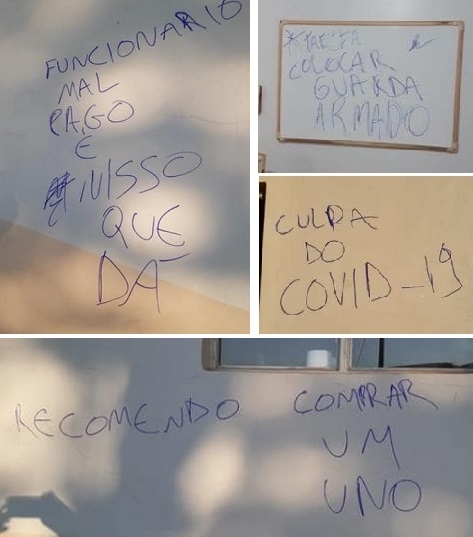 FUNCIONARIO
MAL
PAGO
E
NISSO
QUE
DÁ
*TAREFA
COLOCAR
GUARDA
ARMADO
CULPA
DO
COVID-19
RECOMENDO
COMPRAR
UM
UNO